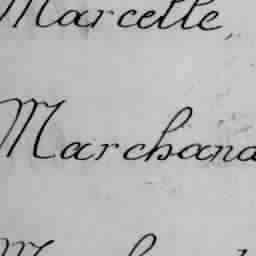 Marcelle,
Marchand